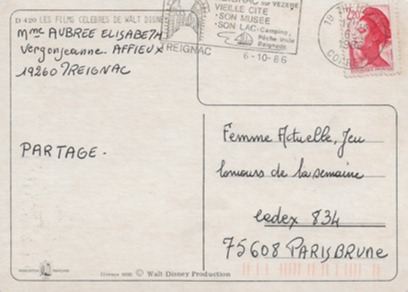 D 420 LES FILMS CELEBRES DE WALT DISNEY
Mme AUBREE ELISABETH
Vergonjeanne. AFFIEUX
19260 TREIGNAC
PARTAGE.
TREIGNAC
SUR VEZERE
VIEILLE CITE
·SON MUSEE
·SON LAC: Camping,
Pêche Voile
Baignade
6-10-86
19 TREIGNAC
2,20
Femme Actuelle, Jeu
concours de la semaine
cedex 834
75608 PARIS BRUNE
© Walt Disney Production